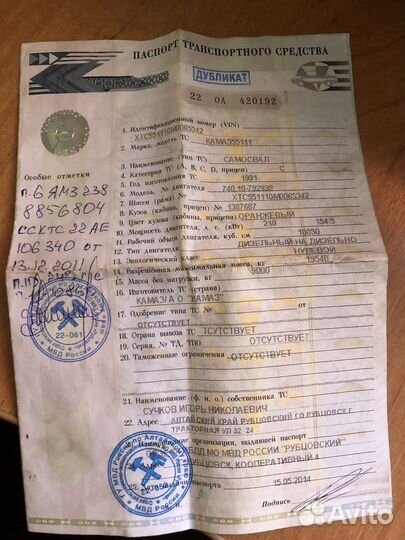 ПАСПОРТ ТРАНСПОРТНОГО СРЕДСТВА
ДУБЛИКАТ
22 ОА 420192
1. Идентификационный номер (VIN) XTC551110M0065342
2. Марка, модель ТС КАМАЗ55111
3. Наименование (тип ТС) САМОСВАЛ
4. Категория ТС (A, B, C, D, прицеп) C
5. Год изготовления ТС 1991
6. Модель, № двигателя 740.10-792938
7. Шасси (рама) № XTC551110M0065342
8. Кузов (кабина, прицеп) № 1397887
9. Цвет кузова (кабины, прицепа) ОРАНЖЕВЫЙ
10. Мощность двигателя, л. с. (кВт) 210 154.5
11. Рабочий объем двигателя, куб. см 10850
12. Тип двигателя ДИЗЕЛЬНЫЙ НА ДИЗЕЛЬНО
13. Экологический класс НУЛЕВОЙ
14. Разрешенная максимальная масса, кг 19540
15. Масса без нагрузки, кг 9000
16. Изготовитель ТС (страна)
КАМАЗ/А О "КАМАЗ"
17. Одобрение типа ТС №
ОТСУТСТВУЕТ
18. Страна вывоза ТС ТСУТСТВУЕТ
19. Серия, № ТД, ТПО ОТСУТСТВУЕТ
20. Таможенные ограничения ОТСУТСТВУЕТ
21. Наименование (ф. и. о.) собственника ТС
СУЧКОВ ИГОРЬ НИКОЛАЕВИЧ
22. Адрес АЛТАЙСКИЙ КРАЙ РУБЦОВСКИЙ ГО РУБЦОВСК Г
ТРАКТОРНАЯ УЛ 32 24
организации, выдавшей паспорт
БДД МО МВД РОССИИ "РУБЦОВСКИЙ"
РУБЦОВСК, КООПЕРАТИВНЫЙ 4
паспорта 15.05.2014
Подпись
Особые отметки
п. 6 ЯМЗ 238
8856804
СС КТС 22 АЕ
106340 от
13.12.2011г
22-061
МВД РОССИИ
МВД РОССИИ
Avito